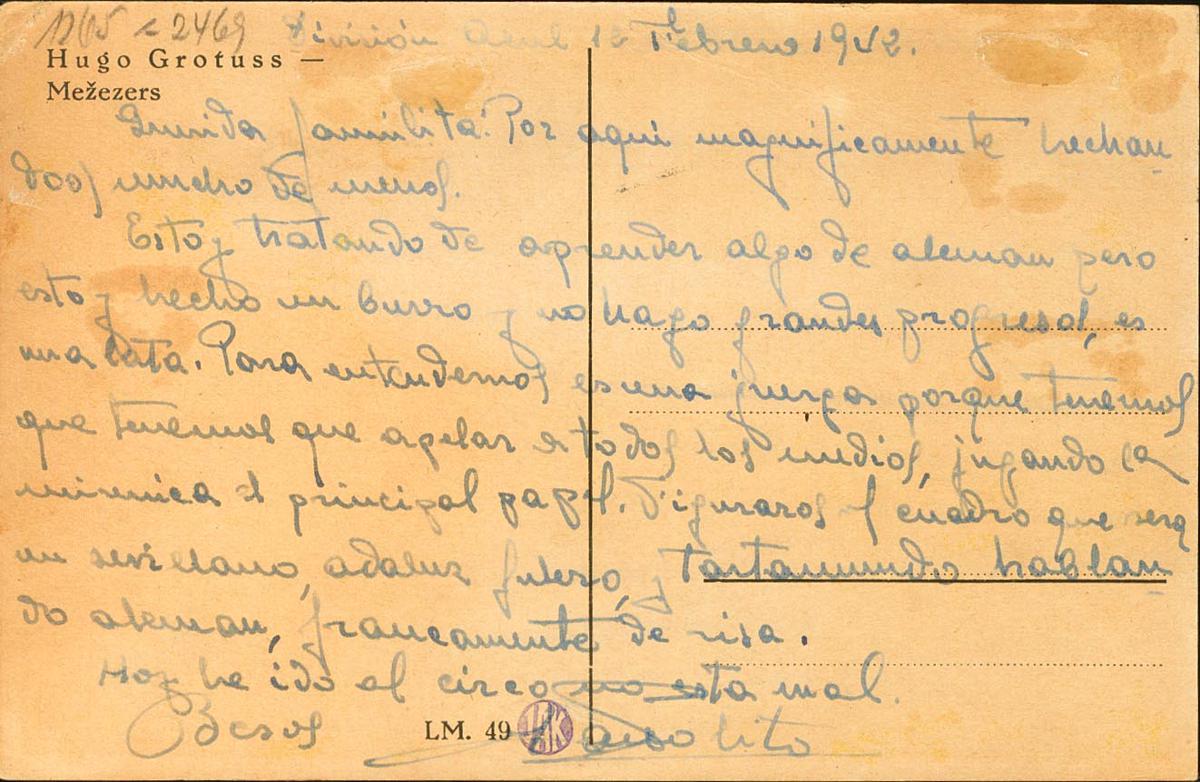 1765 2469 División Azul 12 Febrero 1942.
Hugo Grotuss —
Mežezers
Querida familita: Por aqui magnificamente hechan
doos mucho de menos.
Estoy tratando de aprender algo de aleman pero
estoy hecho un burro y no hago grandes progresos, es
una lata. Para entendernos es una juerga porque tenemos
que tenemos que apelar a todos los medios, jugando la
mimica el principal papel. Figuraros el cuadro que será
un sevillano, adaluz fulero, y tartamundo hablan
do aleman, francamente de risa.
Hoy he ido al circo no esta mal.
Besos
LM. 49